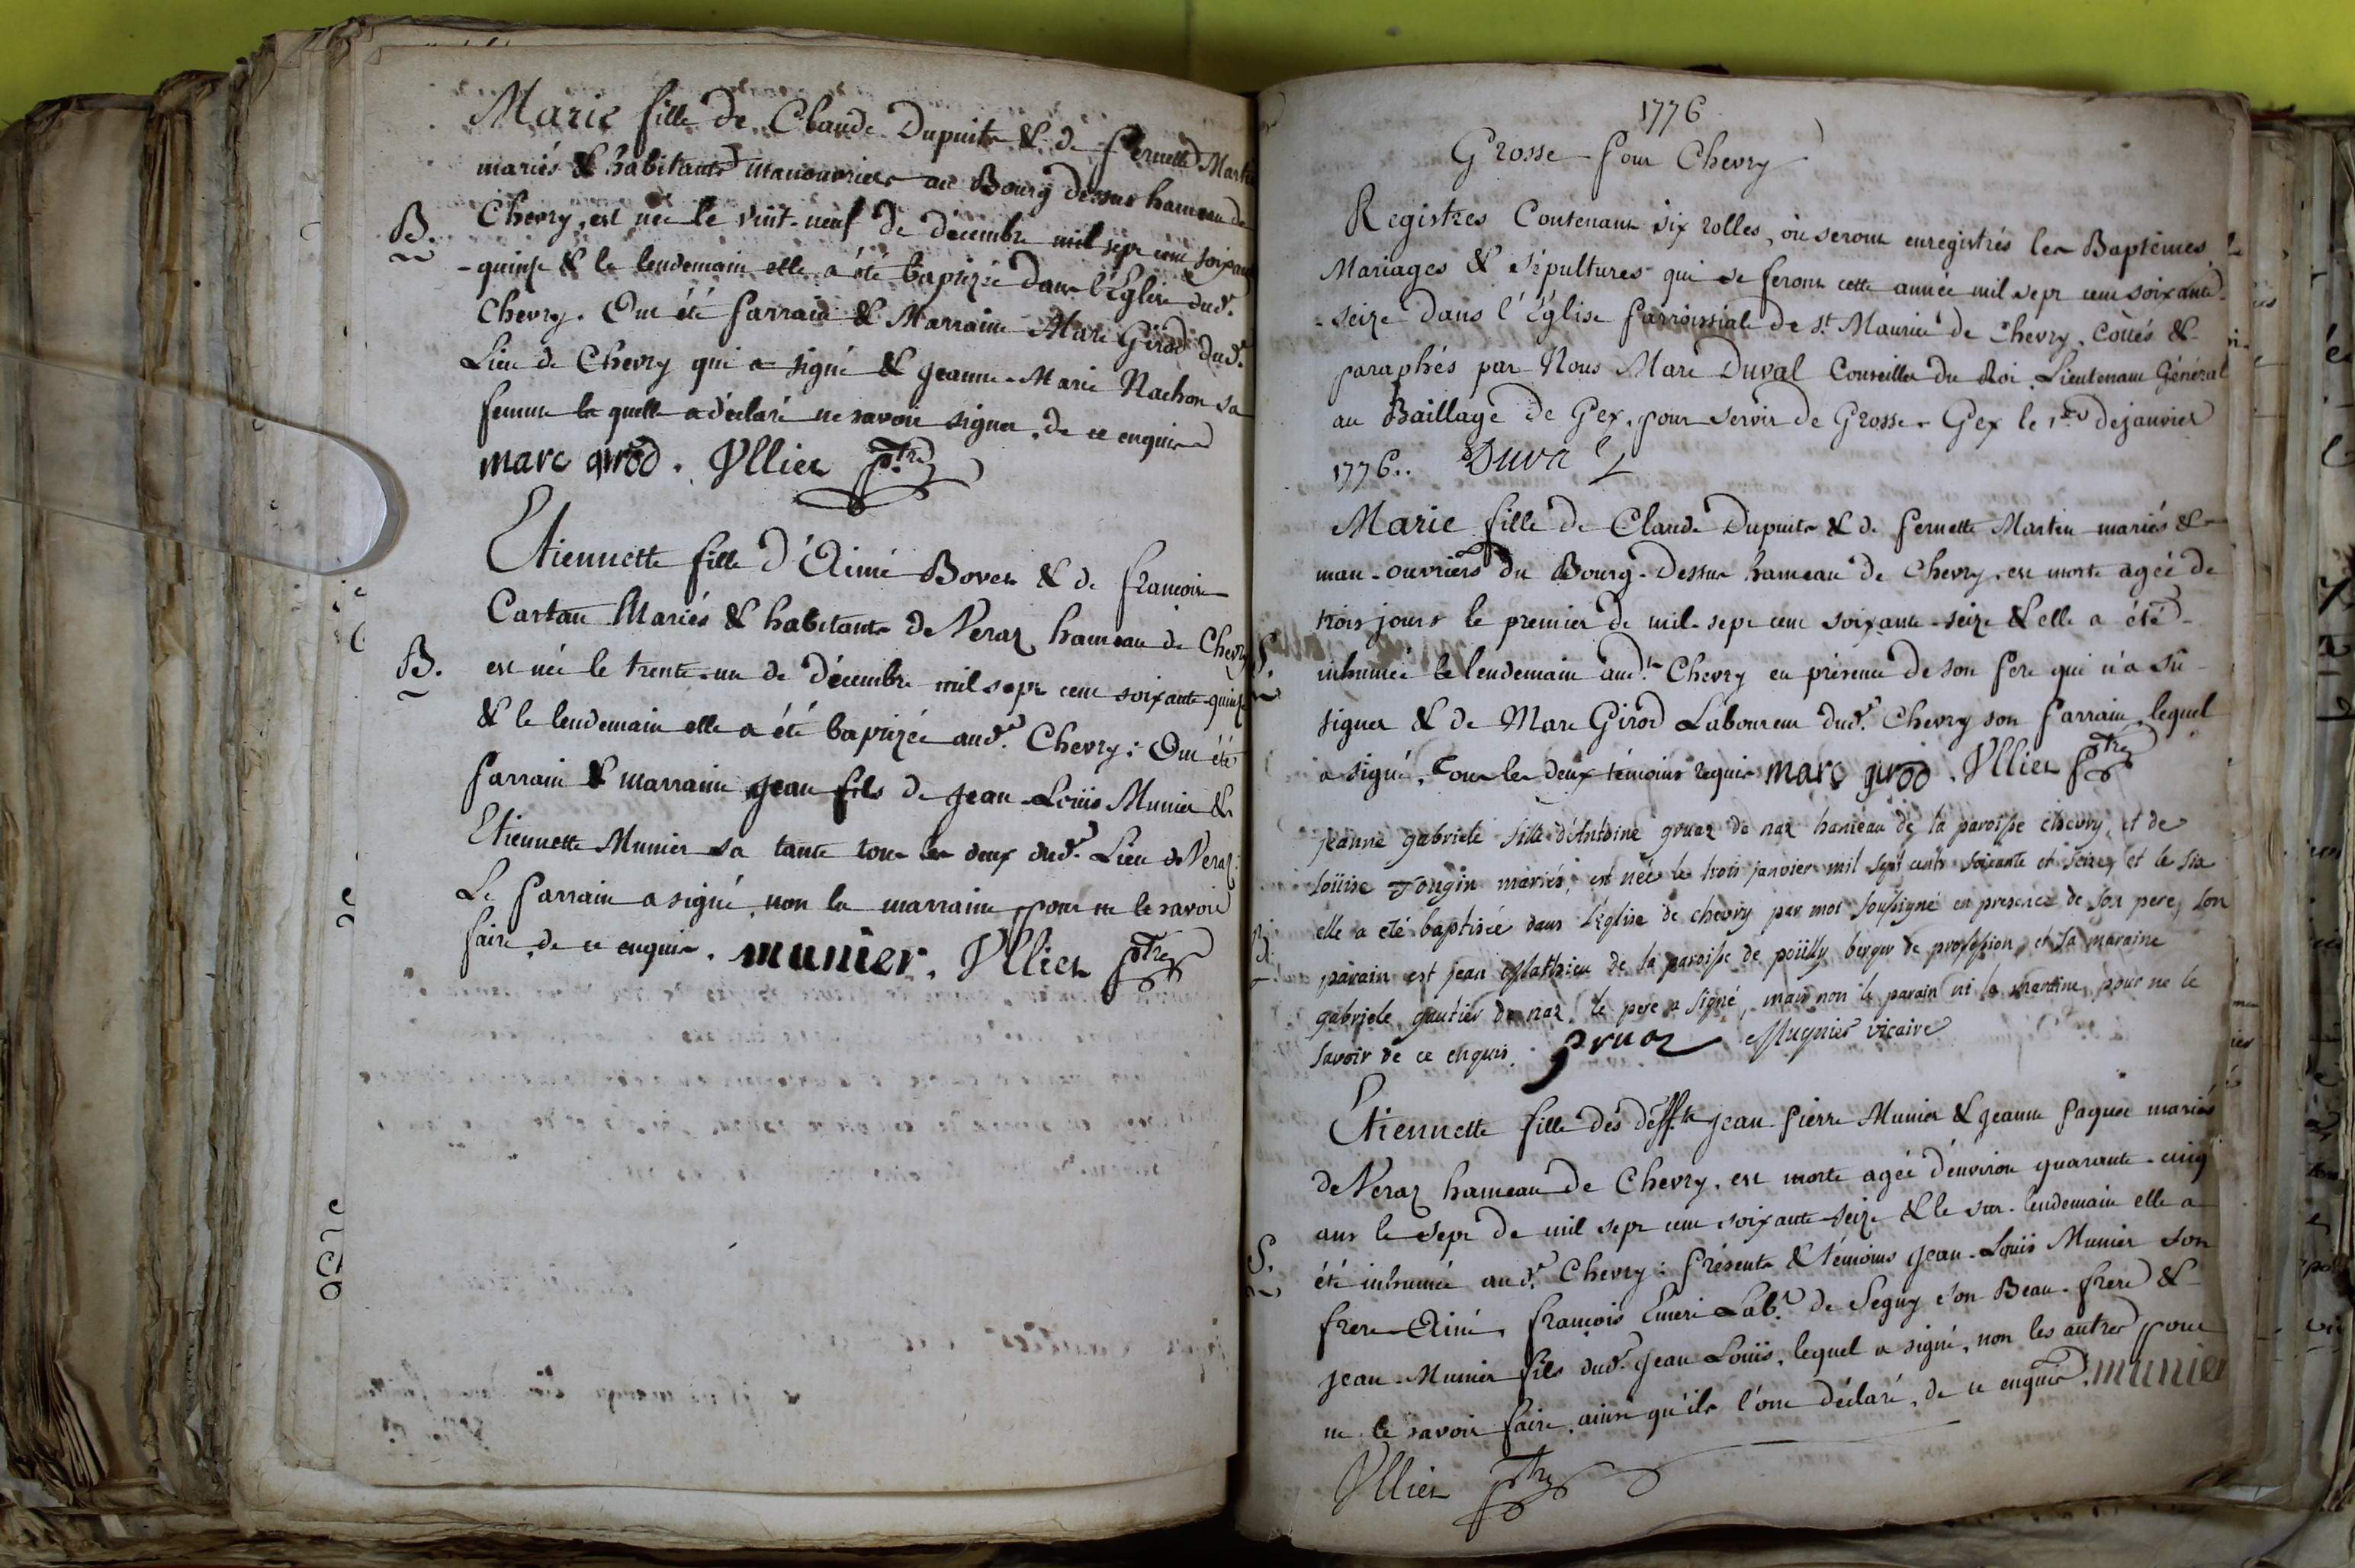 Marie fille de Claude Dupuits & de Pernette Martin
mariés & habitants manouvriers au Bourg dessus hameau de
B. Chevry, est née le vint-neuf de décembre mil sept cent soixante
-quinze & le lendemain elle a été baptizée dans l'Eglise dud.
Chevry. Ont été Parrain & Marraine Marc Girod dud.
Lieu de Chevry qui a signé & Jeanne-Marie Nachon sa
femme la quelle a déclaré ne savoir signer, de ce enquise
marc girod. Ullier ptre
Etiennette fille d'Aimé Bovet & de françoise
Castan Mariés & habitants de Veraz hameau de Chevry
B. est née le trente-un de décembre mil sept cent soixante-quinze
& le lendemain elle a été baptizée aud. Chevry: Ont été
Parrain & marraine Jean fils de Jean-Loüis Munier &
Etiennette Munier sa tante tous les deux dud. Lieu de Veraz:
Le Parrain a signé, non la marraine, pour ne le savoir
faire, de ce enquis. munier. Ullier ptre
1776
Grosse pour Chevry
Registres Contenant six rolles, où seront enregistrés les Baptêmes, le
Mariages & Sépultures qui se feront cette année mil sept cent soixante-
-seize dans l'Église Parroissiale de St. Maurice de Chevry. Cottés &
paraphés par Nous Marc Duval Conseiller du Roi Lieutenant Général
au Baillage de Gex, pour servir de Grosse. Gex le 1er de janvier
1776.. Duval
Marie fille de Claude Dupuits & de Pernette Martin mariés &
man-ouvriers du Bourg-Dessus hameau de Chevry, est morte agée de
trois jours le premier de mil-sept cent soixante-seize & elle a été
S. inhumée le lendemain aud. Chevry en présence de son Pere qui n'a sû
signer & de Marc Girod Laboureur dud. Chevry son Parrain, lequel
a signé, Tous les deux témoins requis marc girod. Ullier ptre
jeanne gabriele fille d'Antoine gruaz de naz hameau de la paroisse chevry, et de
Loüise Tougin mariés, est née le trois janvier mil sept cents soixante et seize, et le six
B. elle a été baptisée dans l'Eglise de chevry par moi soussigné en presence de son pere, son
parain est jean Matthieu de la paroisse de poüilly berger de profession, et sa maraine
gabriele gautier de naz. le pere a signé, mais non le parain ni la maraine, pour ne le
savoir de ce enquis. gruaz Mugnier vicaire
Etiennette fille dés déffts Jean-Pierre Munier & Jeanne Paquet mariés
de Veraz hameau de Chevry, est morte agée d'environ quarante-cinq
ans le sept de mil sept cent soixante-seize & le sur-lendemain elle a
S. été inhumée aud. Chevry: Présents & témoins Jean-Louis Munier son
frere Ainé, François Emeri Labr. de Segny son Beau-frere &
Jean-Munier fils dud. Jean Loüis, lequel a signé, non les autres pour
ne le savoir faire, ainsi qu'ils l'ont déclaré, de ce enquis. munier
Ullier ptre